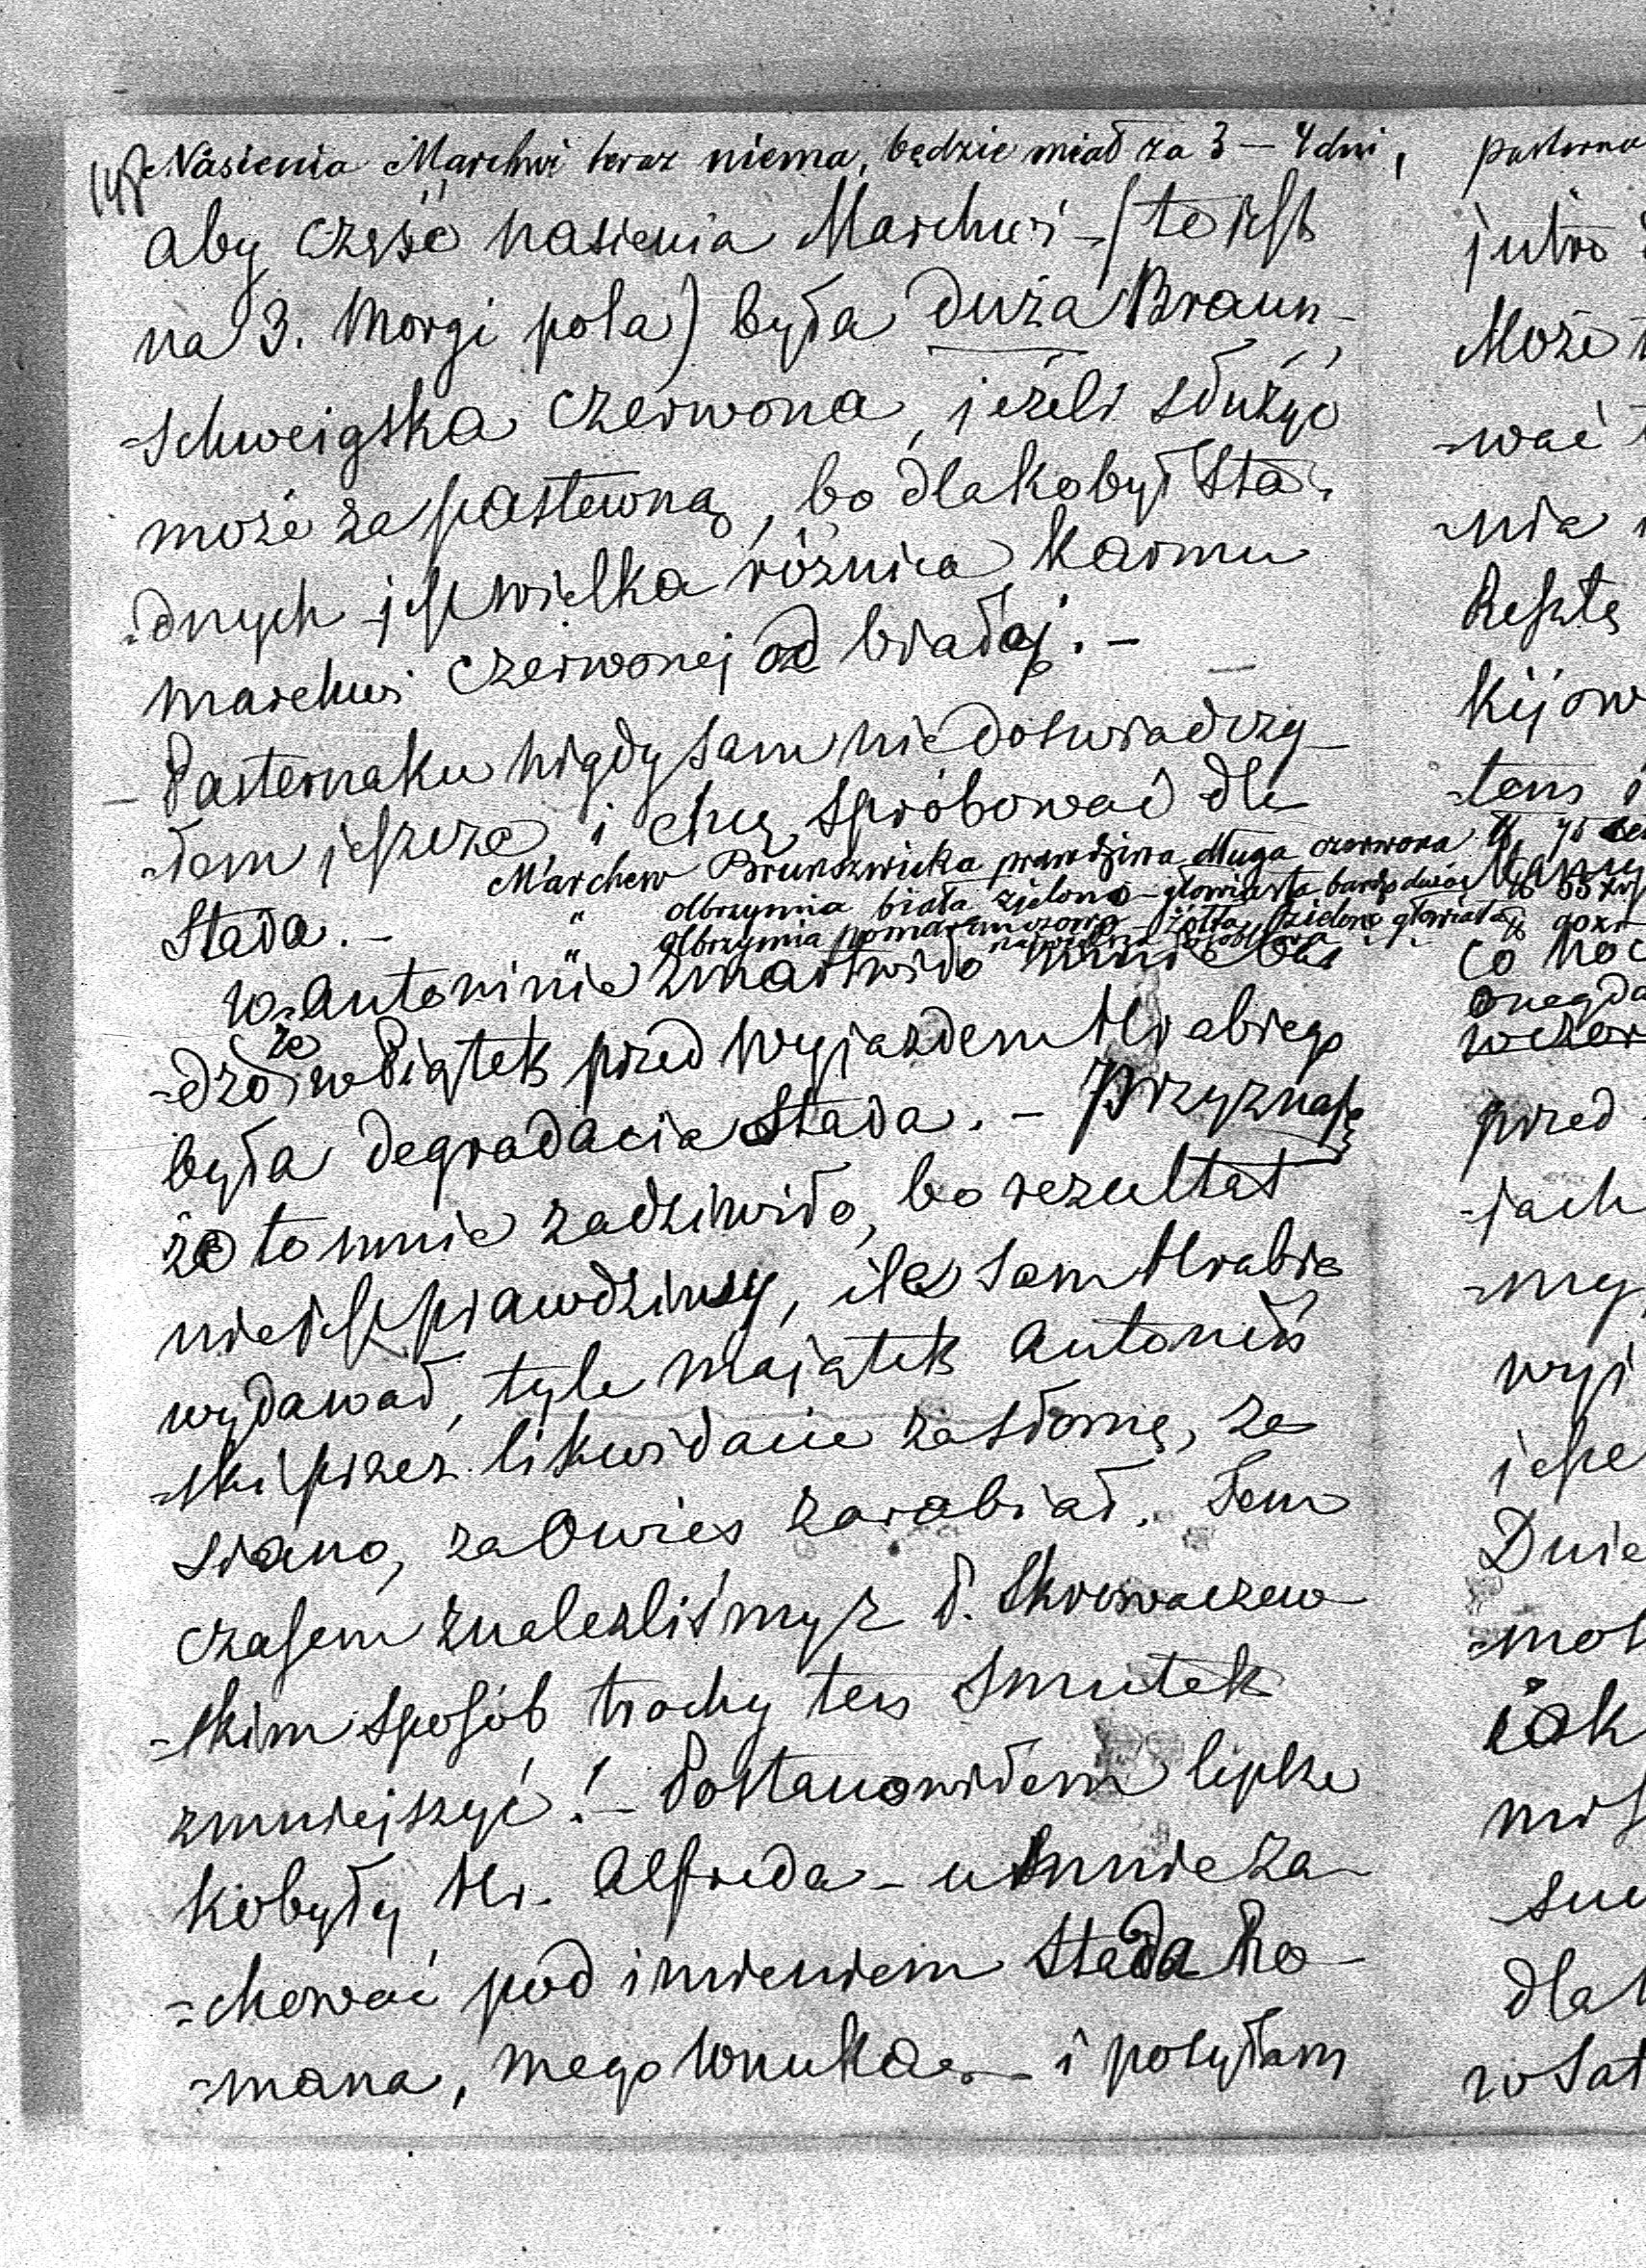 148
Nasienia Marchwi teraz niema, będzie miał za 3 – 4 dni,
aby część nasienia Marchwi – (to jest
na 3. Morgi pola) była duża Braun-
-schweigska czerwona, jeżeli służyć
może za pastewną, bo dla kobył sta-
-dnych jest wielka różnica karmu
marchwi czerwonej od białej. –
– Pasternaku nigdy sam nie doswiadczy-
-łem jeszcze, i chcę spróbować dla
Marchew Brunszwicka prawdziwa długa czerwona
Stada. –
" olbrzymia biała zielono-głowiasta bardzo duża
" olbrzymia pomarańczowa – żółta, zielono głowiasta
w Antoninie zmartwiło mnie bar-
-dzo że w Piątek przed wyjazdem Hrabiego
była degradacia Stada. – Przyznaję
że to mnie zadziwiło, bo rezultat
nie jest prawdziwy, ile sam Hrabia
wydawał, tyle majątek Antoniń-
-ski przez likwidacie za słomę, za
siano, za Owies zarabiał. Tem
czasem znalezliśmy z P. Skrowaczew-
-skim sposób trochy ten smutek
zmniejszyć! – Postanowiłem lepsze
kobyły Hr. Alfreda – u mnie za-
-chować pod imieniem Stada Ro-
-mana, mego Wnuka – i posyłam
pasterna
jutro
Może
-wać
-nia
Resztę
kijow
co noc
onegda
wczor
przed
-jach
-my
wyj
Dnie
-mot
iak
dla